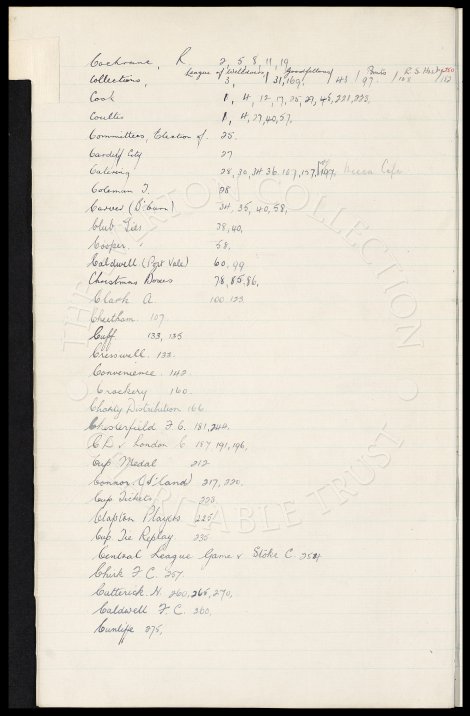 Cochrane, R 2, 5, 8, 11, 19
Collections, League of Wellwishers 3, / 31, Goodfellows 169, / 43 / Boots 97. / R. S. Hosp 108 /
Cook 1, 4, 12, 17, 25, 29, 45, 221, 223.
Coulter 1, 4, 29, 40, 57,
Committees, Election of. 25.
Cardiff City 27
Catering 28, 30, 34 36. 107, 177, 197, Mecca Cafe
Coleman T. 28
Carver (Dibum) 34, 35, 40, 58,
Club Ties 38, 40,
Cooper. 58,
Caldwell (Port Vale) 60, 99
Christmas Boxes 78, 85, 86,
Clark A. 100. 123.
Cheetham. 107.
Cuff 133, 135
Cresswell. 133.
Convenience. 142
Crockery 160.
Charity Distribution 166.
Chesterfield F. C. 181, 244.
C. L. v London C 187. 191, 196,
Cup Medal 212
Connor (I'land) 217, 220.
Cup Tickets 223
Clapton Players 225
Cup Tie Replay 235
Central League Game v Stoke C. 254
Chirk F. C. 257.
Catterick. H. 260, 265, 270,
Caldwell F. C. 260,
Cunliffe 275,
THE EVERTON COLLECTION CHARITABLE TRUST